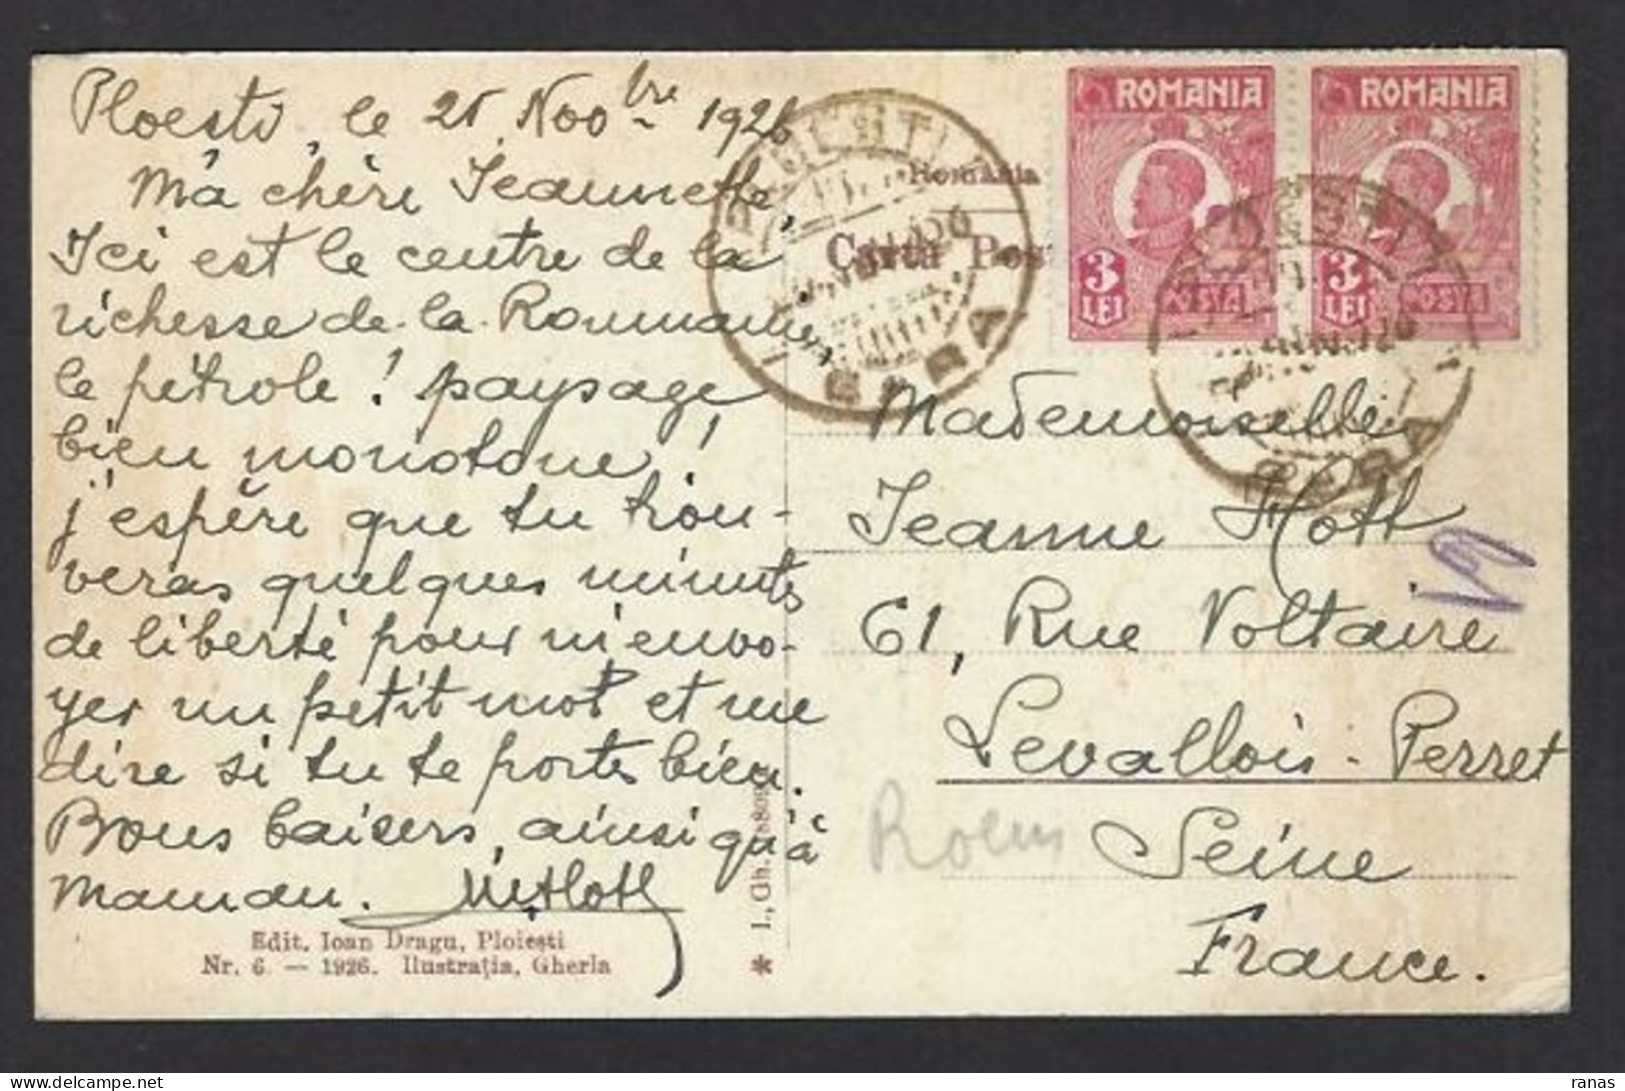 Ploesti, le 21 Novbre 1926
Ma chère Jeannette,
Ici est le centre de la
richesse de la Roumanie,
le pétrole! paysage
bien monotone!
j'espère que tu trou-
veras quelques minutes
de liberté pour m'envo-
yer un petit mot et me
dire si tu te portes bien.
Bons baisers, ainsi qu'à
maman.
Edit. Ioan Dragu, Ploiești
Nr. 6 — 1926. Ilustrația, Gherla
* I., Gh.
România
Carta Pos
PLOESTI
GARA
ROMANIA
3 LEI
POSTA
ROMANIA
3 LEI
POSTA
PLOESTI
GARA
Mademoiselle
Jeanne Hott
61, Rue Voltaire
Levallois-Perret
Seine
France.
ranas